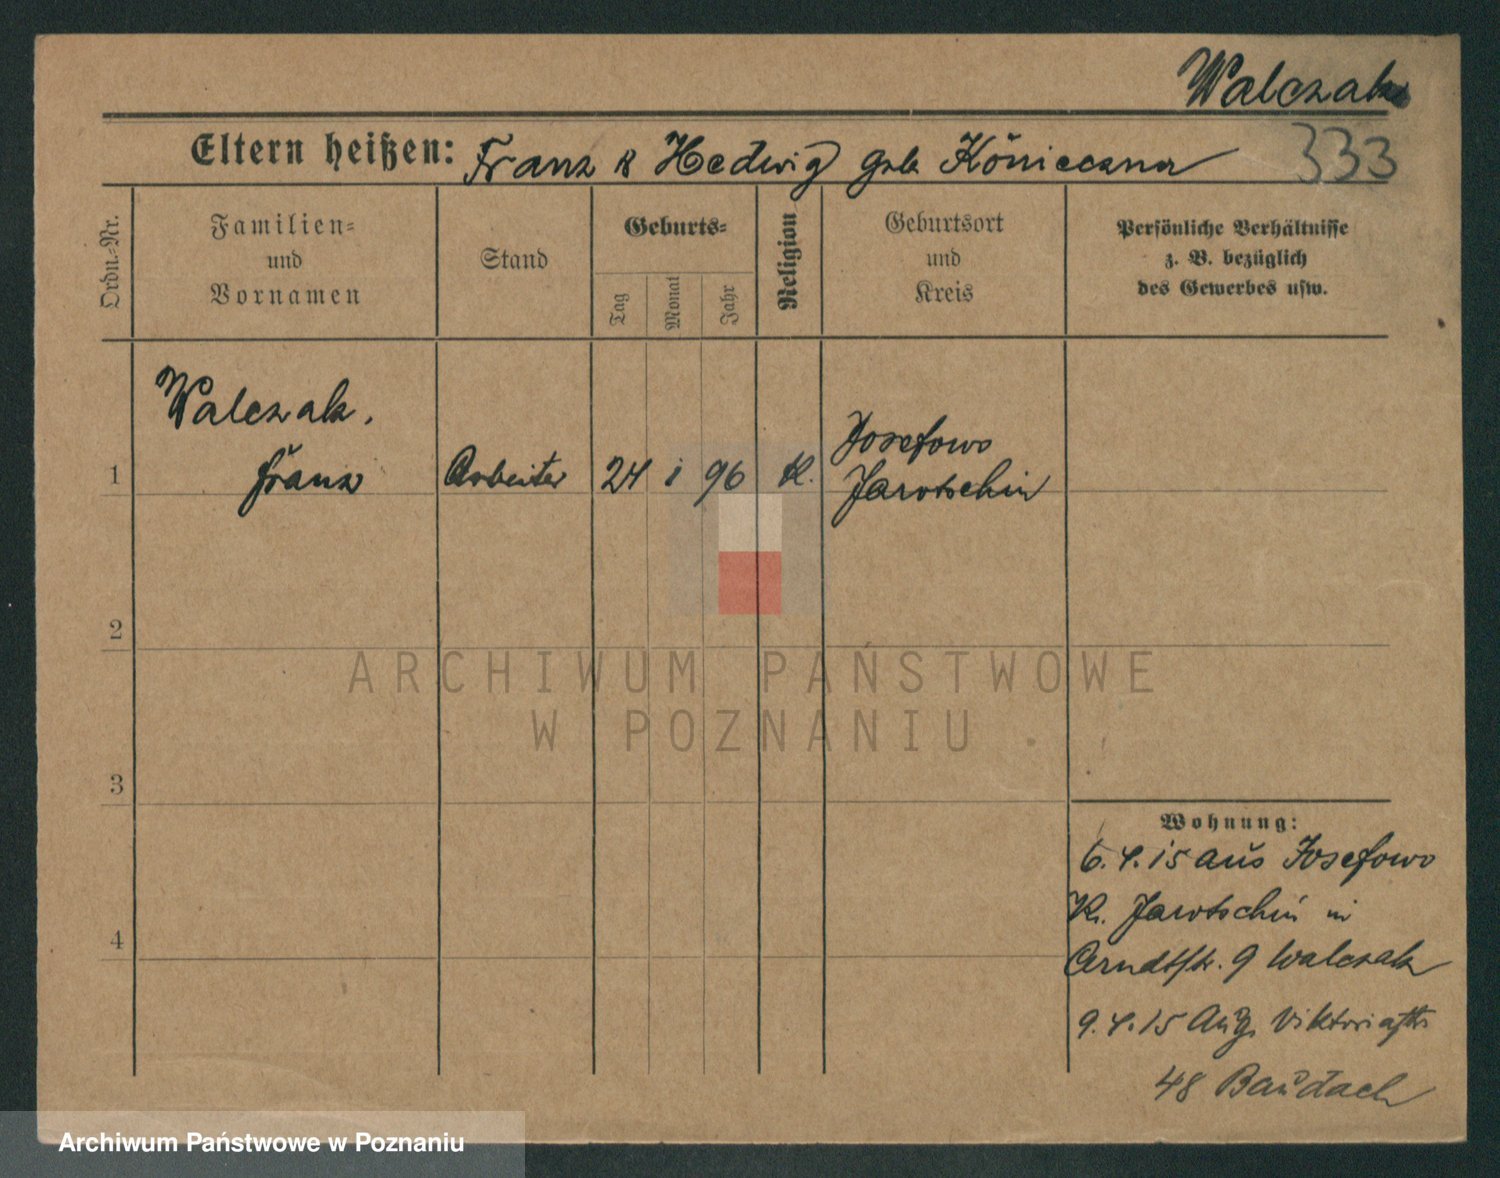 Walczak
333
Eltern heißen: Franz & Hedwig geb Königczna
Ordn.-Nr.
Familien- und Vornamen
Stand
Geburts-
Tag
Monat
Jahr
Religion
Geburtsort und Kreis
Persönliche Verhältnisse
z. B. bezüglich
des Gewerbes usw.
Walczak,
1 Franz Arbeiter 24 1 96 K. Josefowo
Jarotschin
2
ARCHIWUM PAŃSTWOWE
W POZNANIU
3
Wohnung:
6.4.15 aus Josefowo
Kr. Jarotschin in
4
Arndtstr. 9 Walczak
9.4.15 Aug. Viktoriastr.
48 Baudach
Archiwum Państwowe w Poznaniu